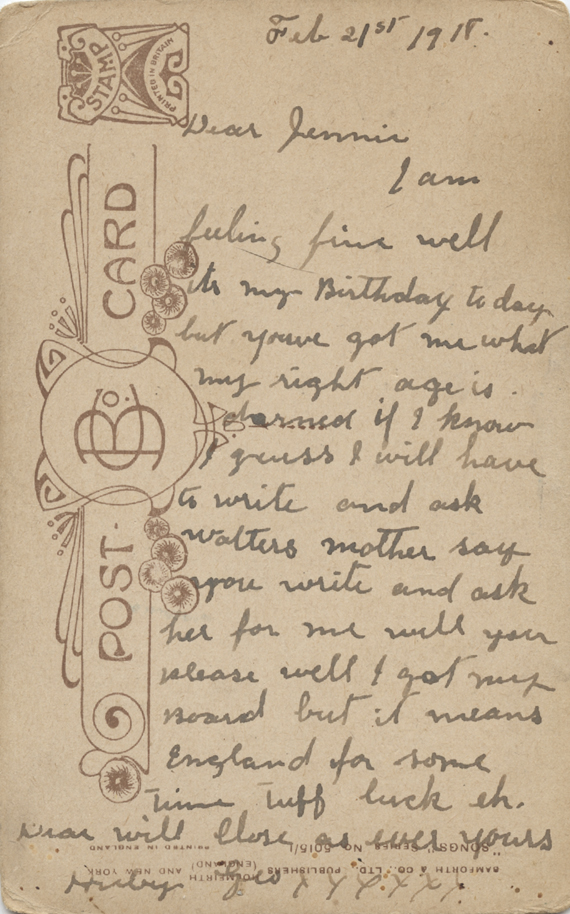 Feb 21st 1918.
STAMP
PRINTED IN BRITAIN
Dear Jennie
I am
feeling fine well
its my Birthday to day
but youve got me what
my right age is.
darned if I know
I guess I will have
to write and ask
Walters mother say
you write and ask
her for me will you
please well I got my
Board but it means
England for some
time tuff luck eh.
Dear will Close as ever yours
Huby Geo X X X X X X
POST CARD
B & Co.
BAMFORTH & CO., LTD., PUBLISHERS, HOLMFIRTH (ENGLAND) AND NEW YORK
"SONGS" SERIES NO. 5015/1
PRINTED IN ENGLAND